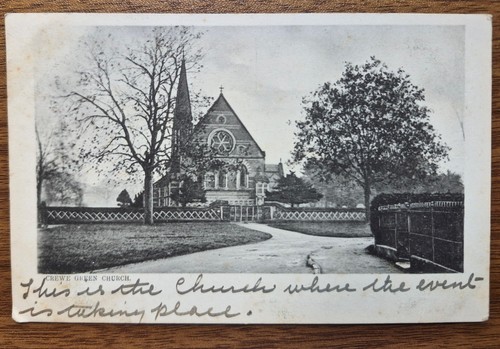 CREWE GREEN CHURCH.
This is the Church where the event
is taking place.